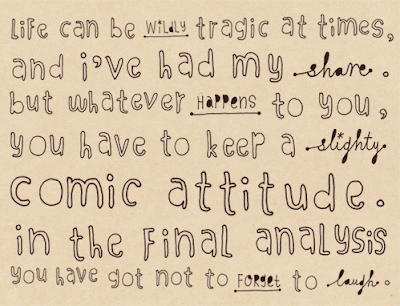 Life can be WiLDLY tragic at times,
and i've had my share.
but whatever Happens to you,
you have to keep a slighty
comic attitude.
in the Final analysis
you have got not to Forget to laugh.